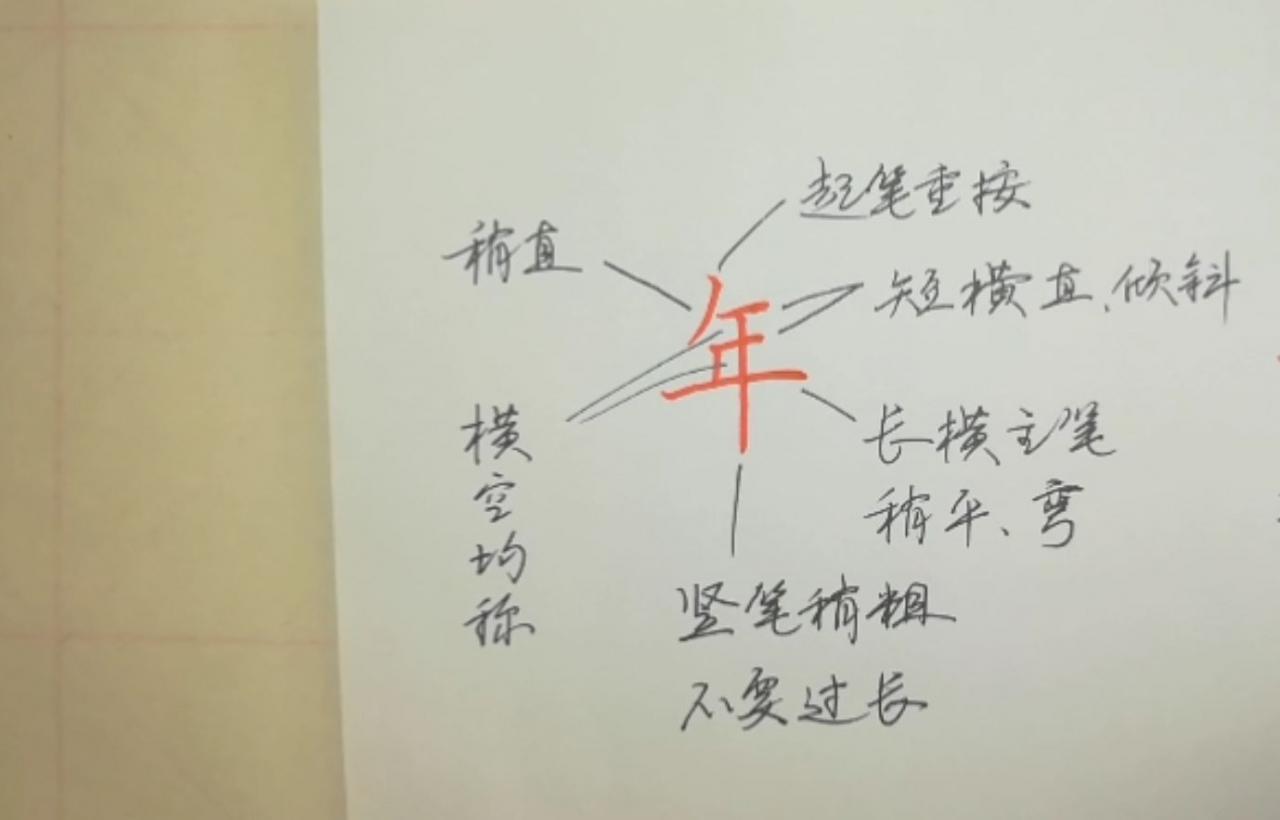 起笔重按
稍直
短横直、倾斜
年
横空均称
长横主笔
稍平、弯
竖笔稍粗
不要过长